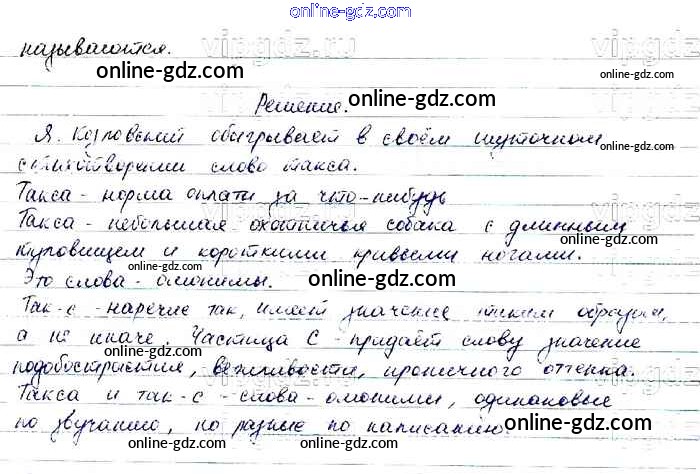 online-gdz.com
называются.
vipgdz.ru
online-gdz.com
online-gdz.com
Решение.
online-gdz.com
Я. Козловский обыгрывает в своём шуточном
стихотворении слово такса.
online-gdz.com
Такса - норма оплаты за что-нибудь
Такса - небольшая охотничья собака с длинным
туловищем и короткими кривыми ногами.
online-gdz.com
online-gdz.com
Это слова - омонимы.
online-gdz.com
Так-с - наречие так, имеет значение таким образом,
а не иначе. Частица С - придаёт слову значение
online-gdz.com
подобострастия, вежливости, ироничного оттенка.
Такса и так-с - слова - омонимы, одинаковые
по звучанию, но разные по написанию.
online-gdz.com
online-gdz.com
online-gdz.com